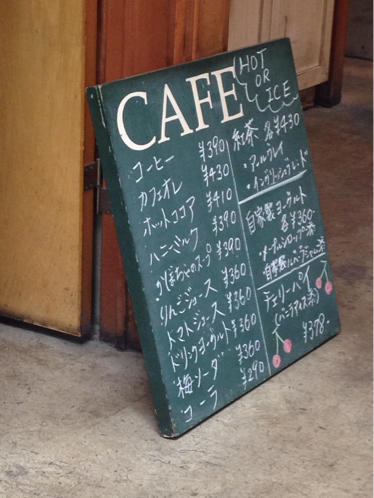 CAFE
HOT
OR
ICE
コーヒー ¥390
カフェオレ ¥430
ホットココア ¥410
ハニーミルク ¥390
かぼちゃのスープ ¥390
りんごジュース ¥360
トマトジュース ¥360
ドリンクヨーグルト ¥360
梅ソーダ ¥360
コーラ ¥290
紅茶 各¥430
・アールグレイ
・イングリッシュブレンド
自家製ヨーグルト
各¥360
・メープルシロップ添
自家製ルバーブジャム添
チェリーパイ
(バニラアイス添)
¥378-